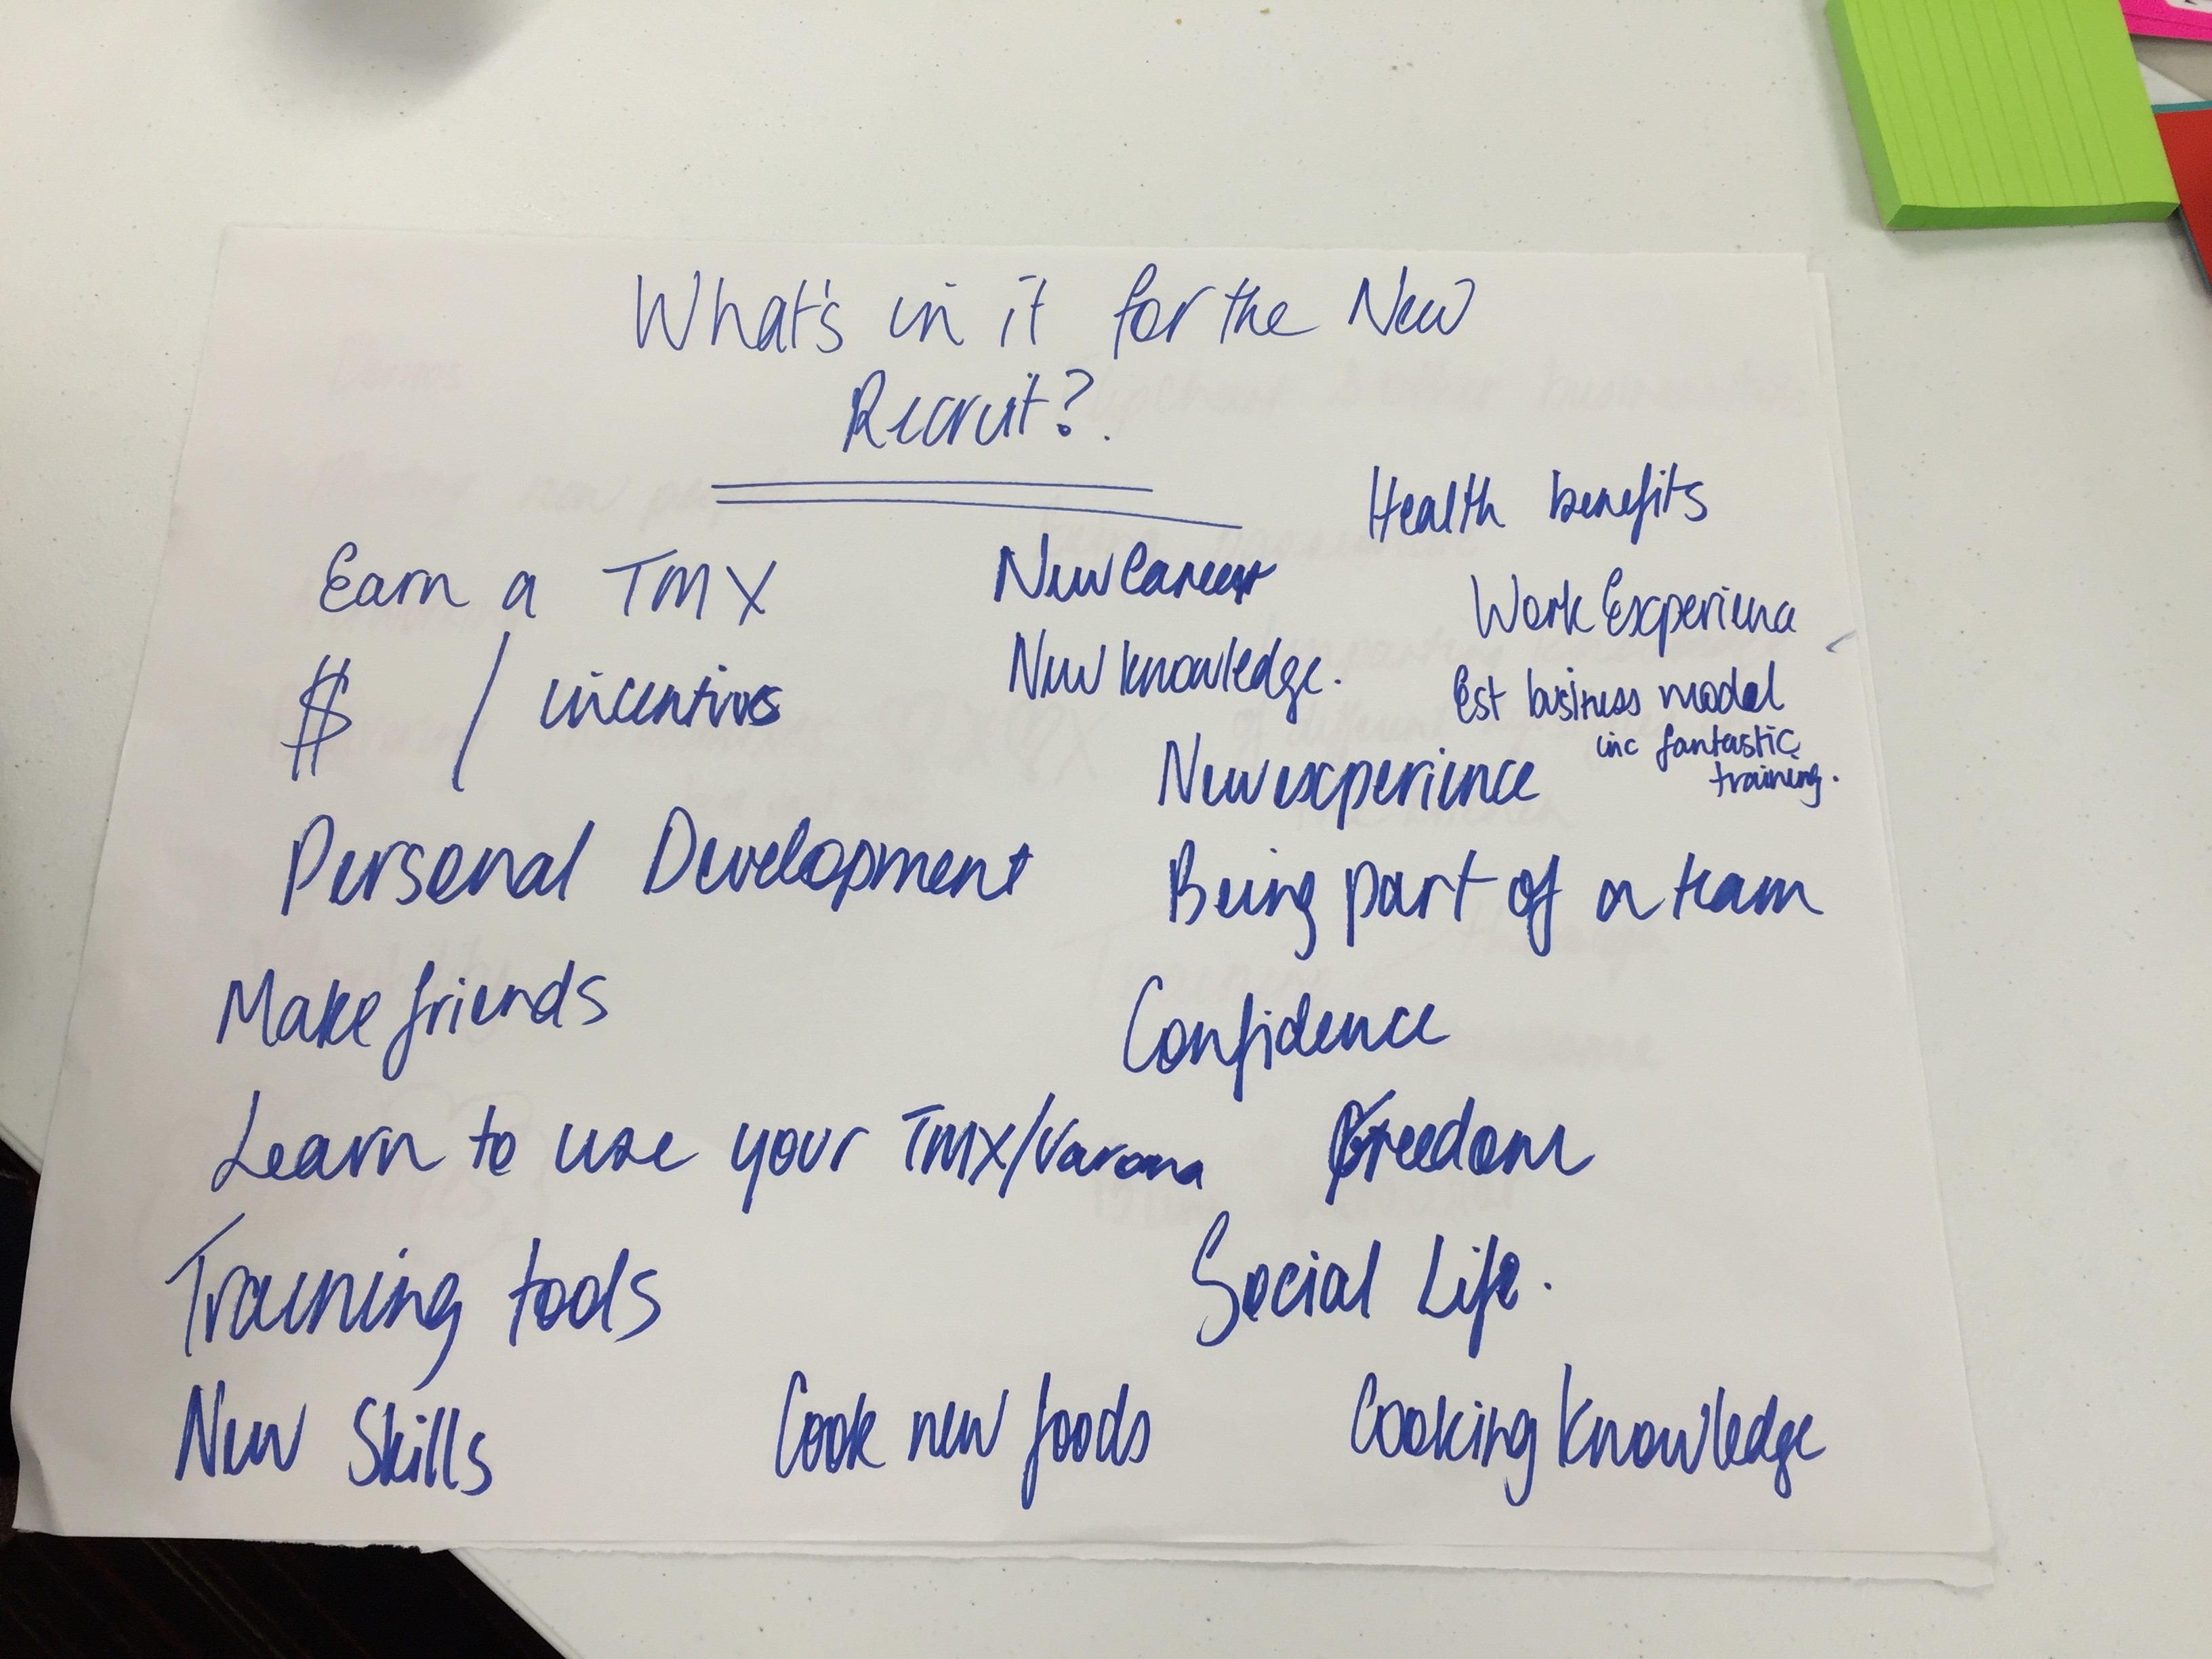 What's in it for the New
Recruit?.
Health benefits
Earn a TMX
New Career
Work Experience
$ / incentives
New knowledge.
Est business model
inc fantastic
training.
New experience
Personal Development
Being part of a team
Make friends
Confidence
Learn to use your TMX/Varoma
Freedom
Training tools
Social Life.
New Skills
Cook new foods
Cooking knowledge